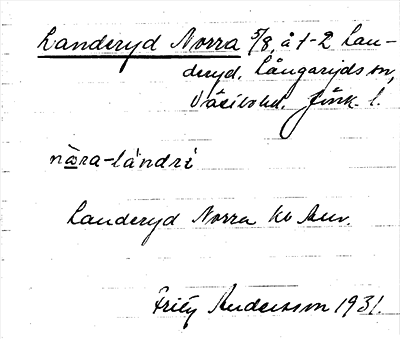 Landeryd Norra 5/8, å 1-2 Lan-
deryd, Långaryds sn,
Västbo hd. Jönk. l.
nära-lándri
Landeryd Norra kb Anv.
Frity Andersson 1931.